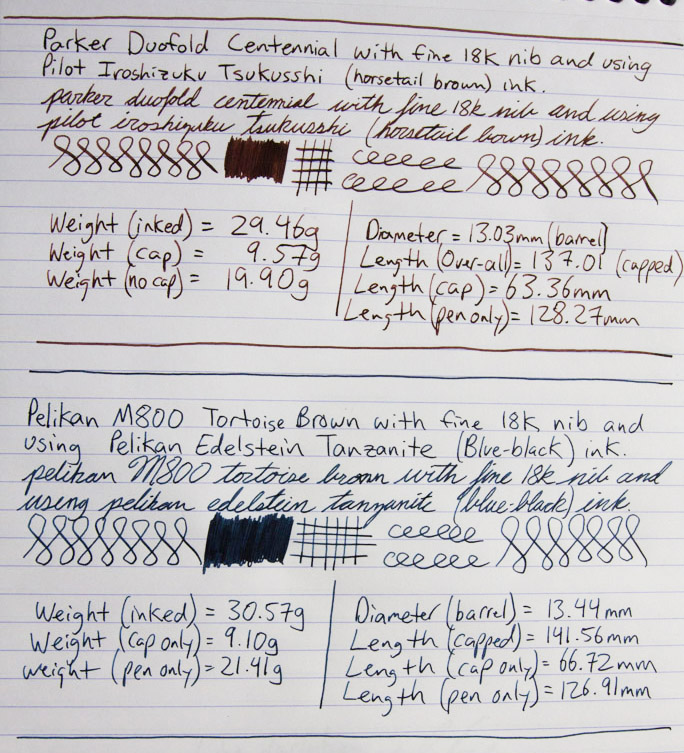 Parker Duofold Centennial with fine 18K nib and using
Pilot Iroshizuku Tsukusshi (horsetail brown) ink.
parker duofold centennial with fine 18k nib and using
pilot iroshizuku tsukusshi (horsetail brown) ink.
Weight (inked) = 29.46g
Weight (cap) = 9.57g
Weight (no cap) = 19.90g
Diameter = 13.03mm (barrel)
Length (Over-all) = 137.01 (capped)
Length (cap) = 63.36mm
Length (pen only) = 128.27mm
Pelikan M800 Tortoise Brown with fine 18K nib and
using Pelikan Edelstein Tanzanite (Blue-black) ink.
pelikan M800 tortoise brown with fine 18k nib and
using pelikan edelstein tanzanite (blue-black) ink.
Weight (inked) = 30.57g
Weight (cap only) = 9.10g
weight (pen only) = 21.41g
Diameter (barrel) = 13.44mm
Length (capped) = 141.56mm
Length (cap only) = 66.72mm
Length (pen only) = 126.91mm